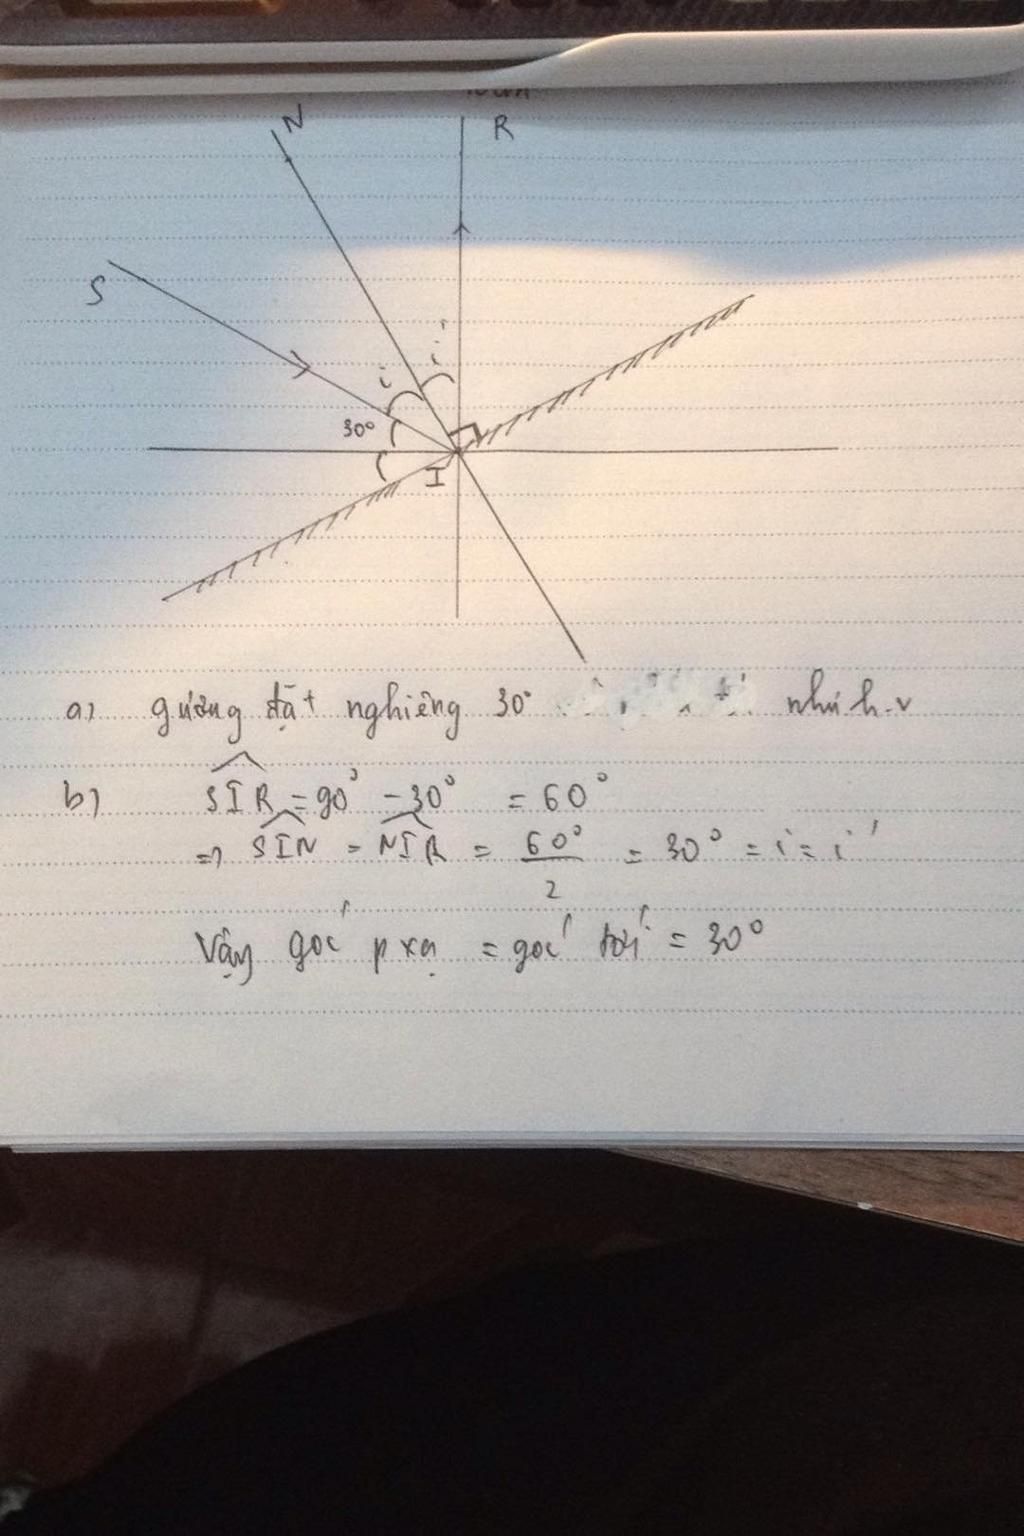 N
R
S
i'
i
30°
I
a) gương đặt nghiêng 30° như h.v
b) SIR = 90° - 30° = 60°
=> SIN = NIR = 60°/2 = 30° = i = i'
Vậy góc pxạ = góc tới = 30°